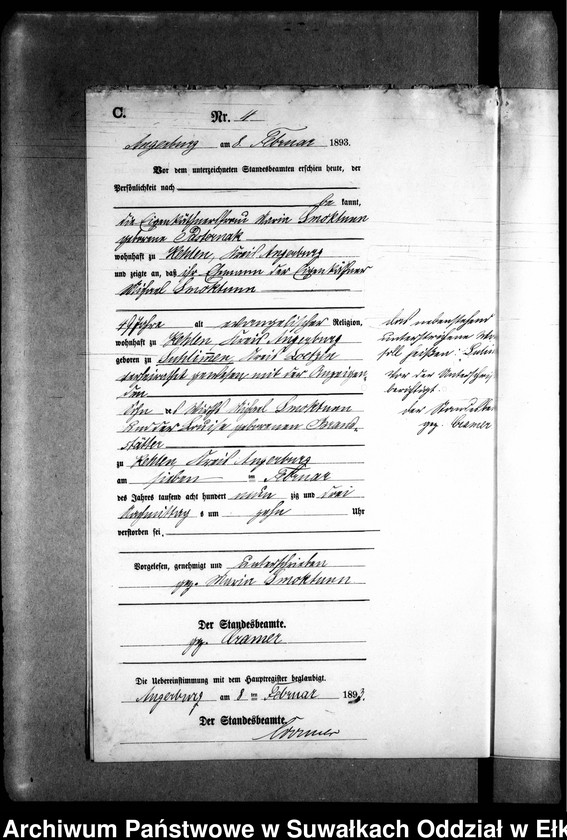 C.
Nr. 11
Angerburg am 8. Februar 1893.
Vor dem unterzeichneten Standesbeamten erschien heute, der
Persönlichkeit nach
be kannt,
die Eigenkäthnersfrau Marie Smoktunn
geborene Pasternak
wohnhaft zu Kehlen, Kreis Angerburg
und zeigte an, daß ihr Ehemann der Eigenkäthner
Michael Smoktunn
49 Jahre alt evangelischer Religion,
wohnhaft zu Kehlen Kreis Angerburg
geboren zu Kreis Loetzen
verheirathet gewesen mit der Anzeigen-
den
Sohn des Michael Smoktunn
und der Louise geborenen
zu Kehlen Kreis Angerburg
am sieben ten Februar
des Jahres tausend acht hundert neun zig und drei
Nachmittag s um zehn Uhr
verstorben sei.
Vorgelesen, genehmigt und unterschrieben
gez. Marie Smoktunn
Der Standesbeamte.
gez. Cramer
Die Uebereinstimmung mit dem Hauptregister beglaubigt.
Angerburg am 8 ten Februar 1893.
Der Standesbeamte.
Cramer
das nebenstehend
unterstrichene
soll heißen:
vor der Unterschrift
berichtigt.
der Standesbe
gez. Cramer
Archiwum Państwowe w Suwałkach Oddział w Ełk